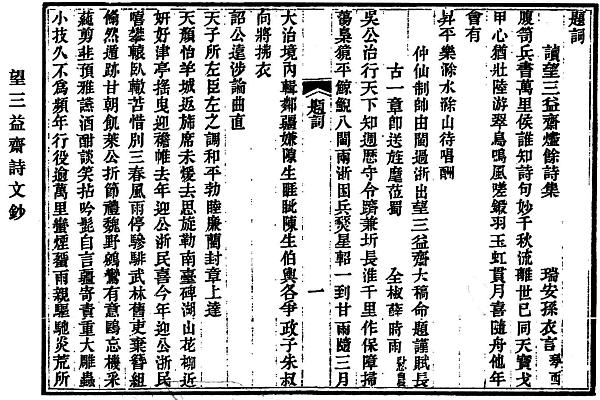 題詞
讀望三益齋燼餘詩集　瑞安孫衣言琴西
腹笥兵書萬里侯誰知詩句妙千秋流離世已同天寶戈
甲心猶壯陸游翠島鳴風嗟鍛羽玉虹貫月喜隨舟他年
會有
昇平樂滁水滁山待唱酬
仲仙制帥由閩過浙出望三益齋大稿命題謹賦長
古一章卽送旌麾莅蜀　全椒薛時雨慰農
吳公治行天下知遍歷守令躋兼圻長淮千里作保障掃
蕩梟獍平鯨鯢八閩兩浙困兵燹星軺一到甘雨隨三月
題詞
一
大治境內輯鄰疆嫌隙生睚眦陳生伯輿各爭政子朱叔
向將拂衣
詔公遠涉論曲直
天子所左臣左之調和平勃睦廉藺封章上達
天顏怡羊城返旆席未煖去思旋勒南臺碑湖山花柳近
妍好津亭搖曳迎襜帷去年迎公浙民喜今年迎公浙民
嘻攀轅臥轍苦惜別三春風雨停驂騑武林舊吏棄簪組
翛然遁跡甘朝飢萊公折節禮魏野鵷鸞有意鷗忘機采
蒓剪韭預雅讌酒酣談笑拈吟髭自言疆寄責重大雕蟲
小技久不爲頻年行役逾萬里蠻煙蜑雨親驅馳炎荒所
望三益齋詩文鈔